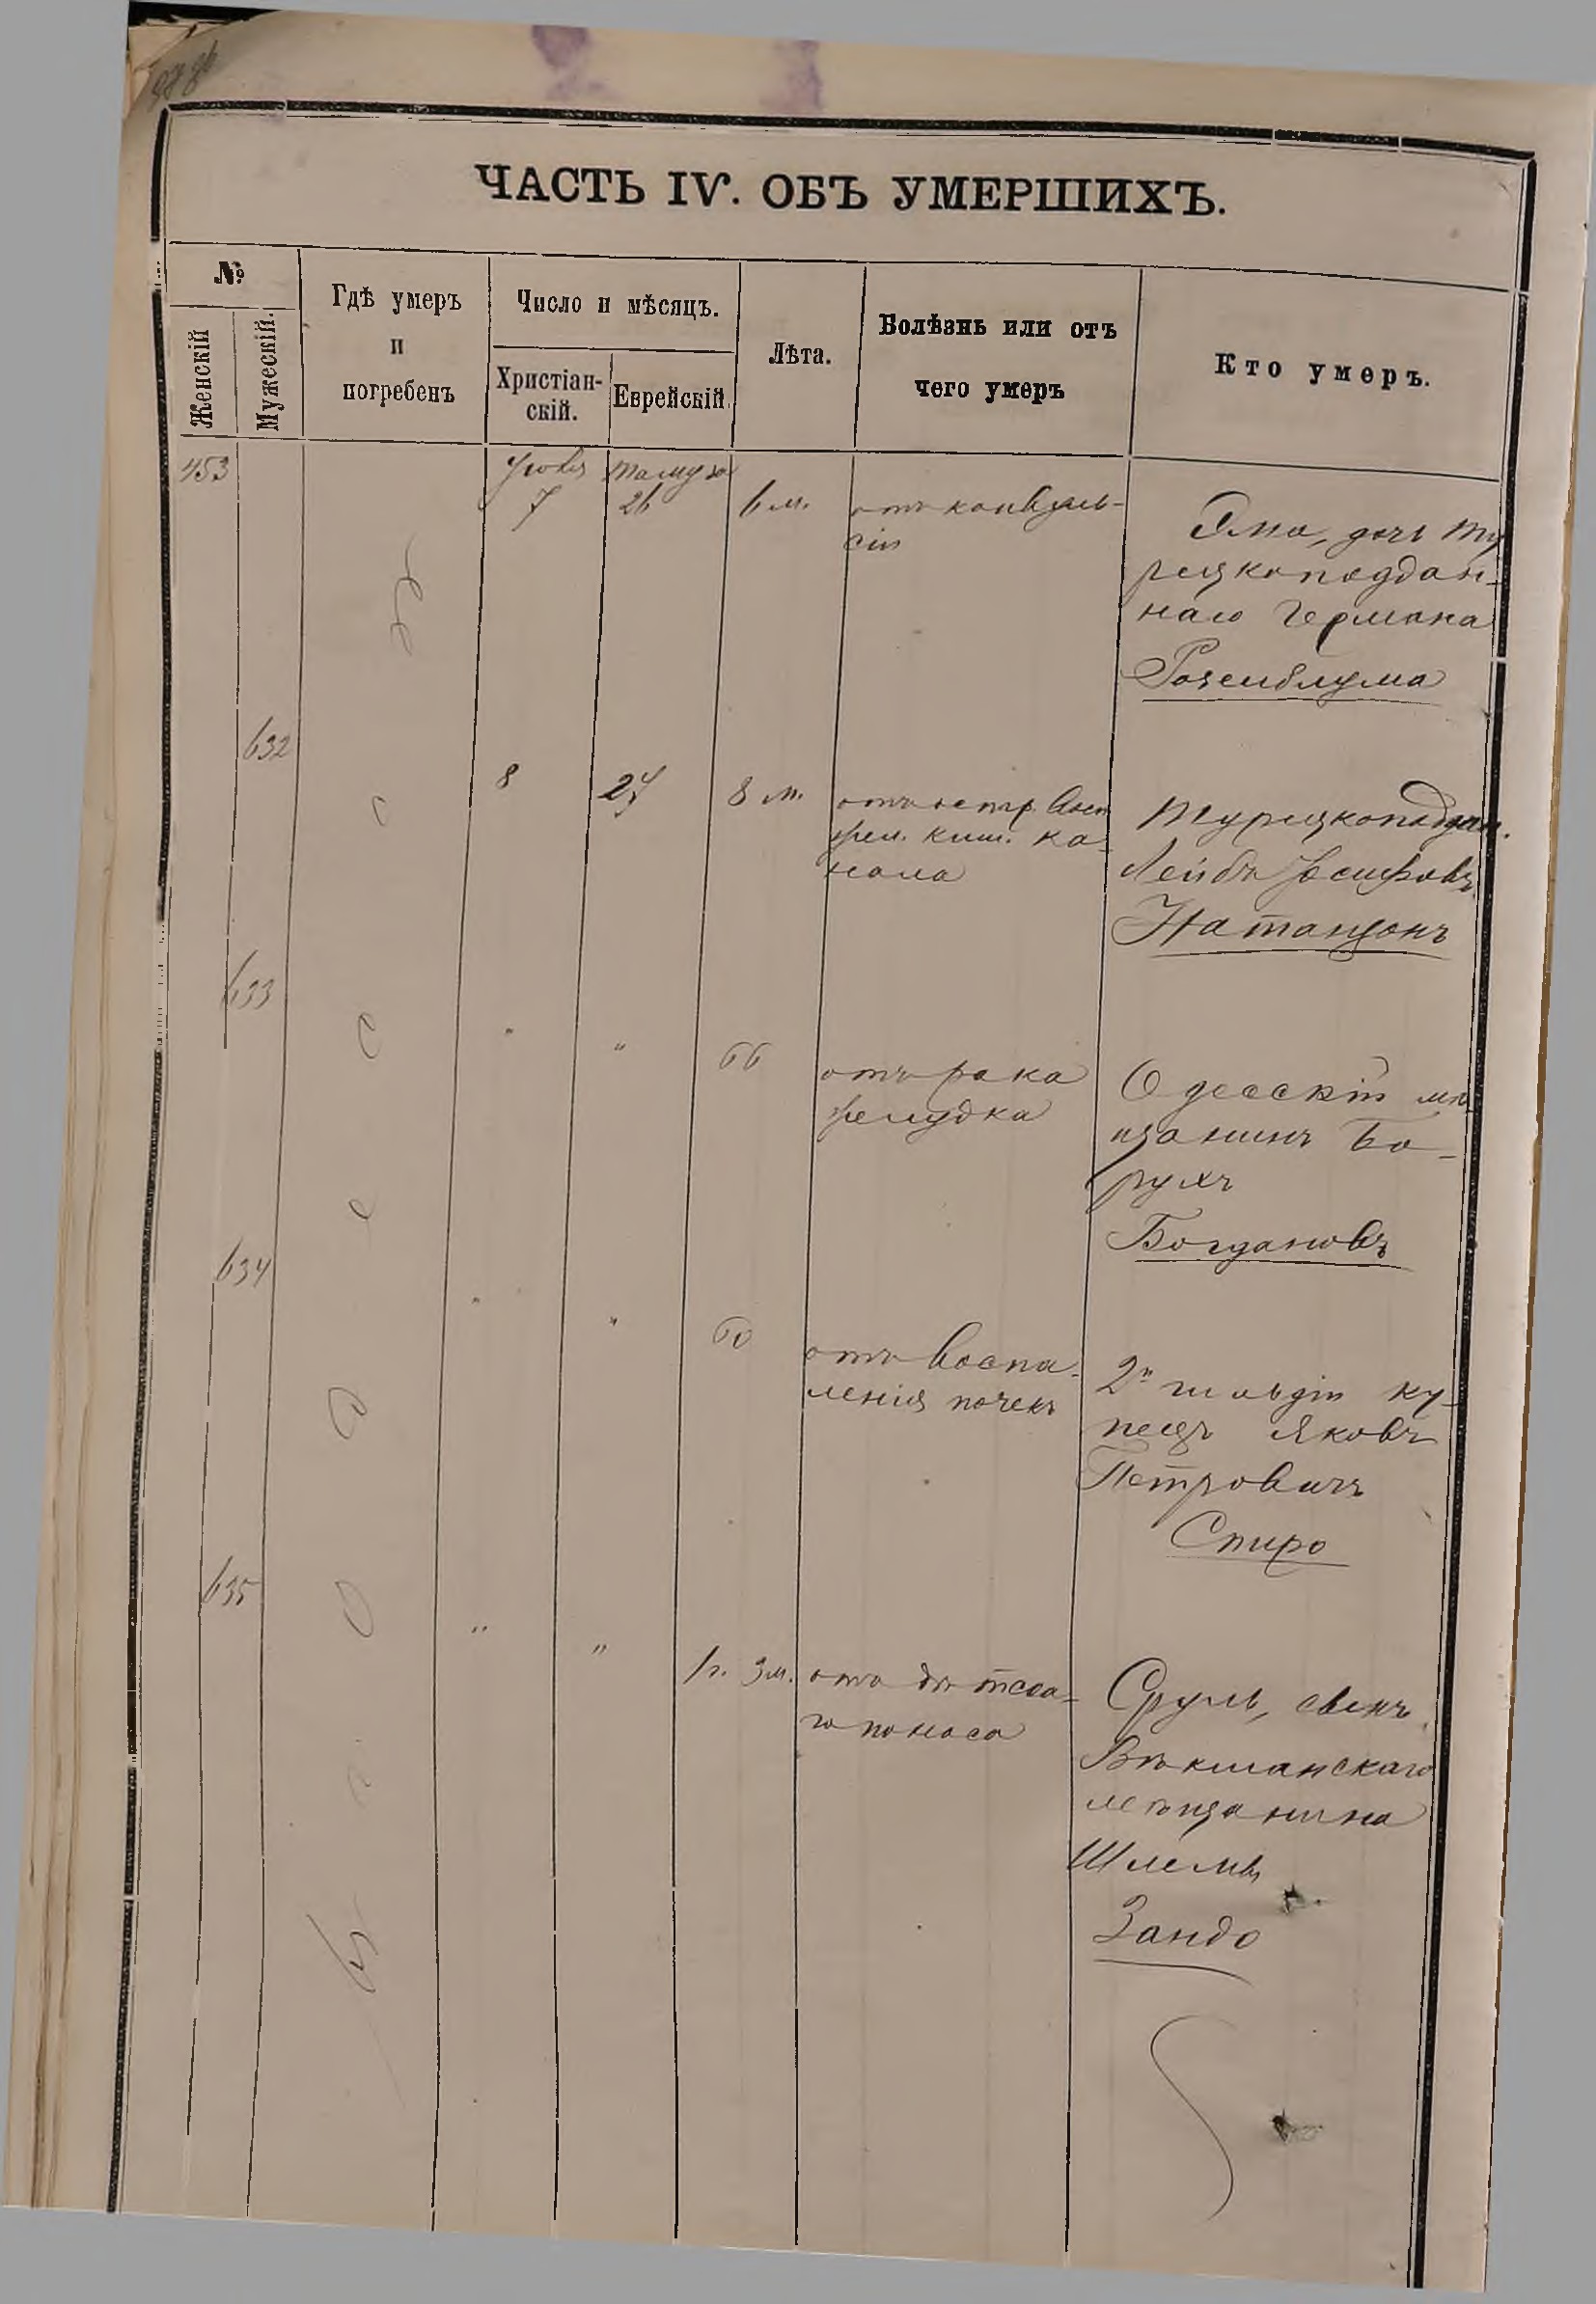 ЧАСТЬ IV. ОБЪ УМЕРШИХЪ.
№
Женскій
Мужескій.
Гдѣ умеръ
и
погребенъ
Число и мѣсяцъ.
Христіан-
скій.
Еврейскій
Лѣта.
Болѣзнь или отъ
чего умеръ
Кто умеръ.
453
Іюля
7
Тамуза
26
6 м.
отъ конвуль-
сіи
дочь Ту
рецкоподдан-
наго Германа
Розенблума
632
8
27
8 м.
отъ остр. Восп
жел. киш. ка-
нала
Турецкоподдан.
Лейбъ Іосифовъ
Натанзонъ
633
"
"
66
отъ рака
желудка
Одесскій мѣ
щанинъ Бо-
рухъ
Богдановъ
634
"
"
60
отъ воспа-
ленія почекъ
2й гильдіи ку-
пецъ Яковъ
Петровичъ
Спиро
635
"
"
1г. 3м.
отъ дѣтска-
го поноса
Сруль, сынъ
Вѣкшанскаго
мѣщанина
Шлемы
Зандо